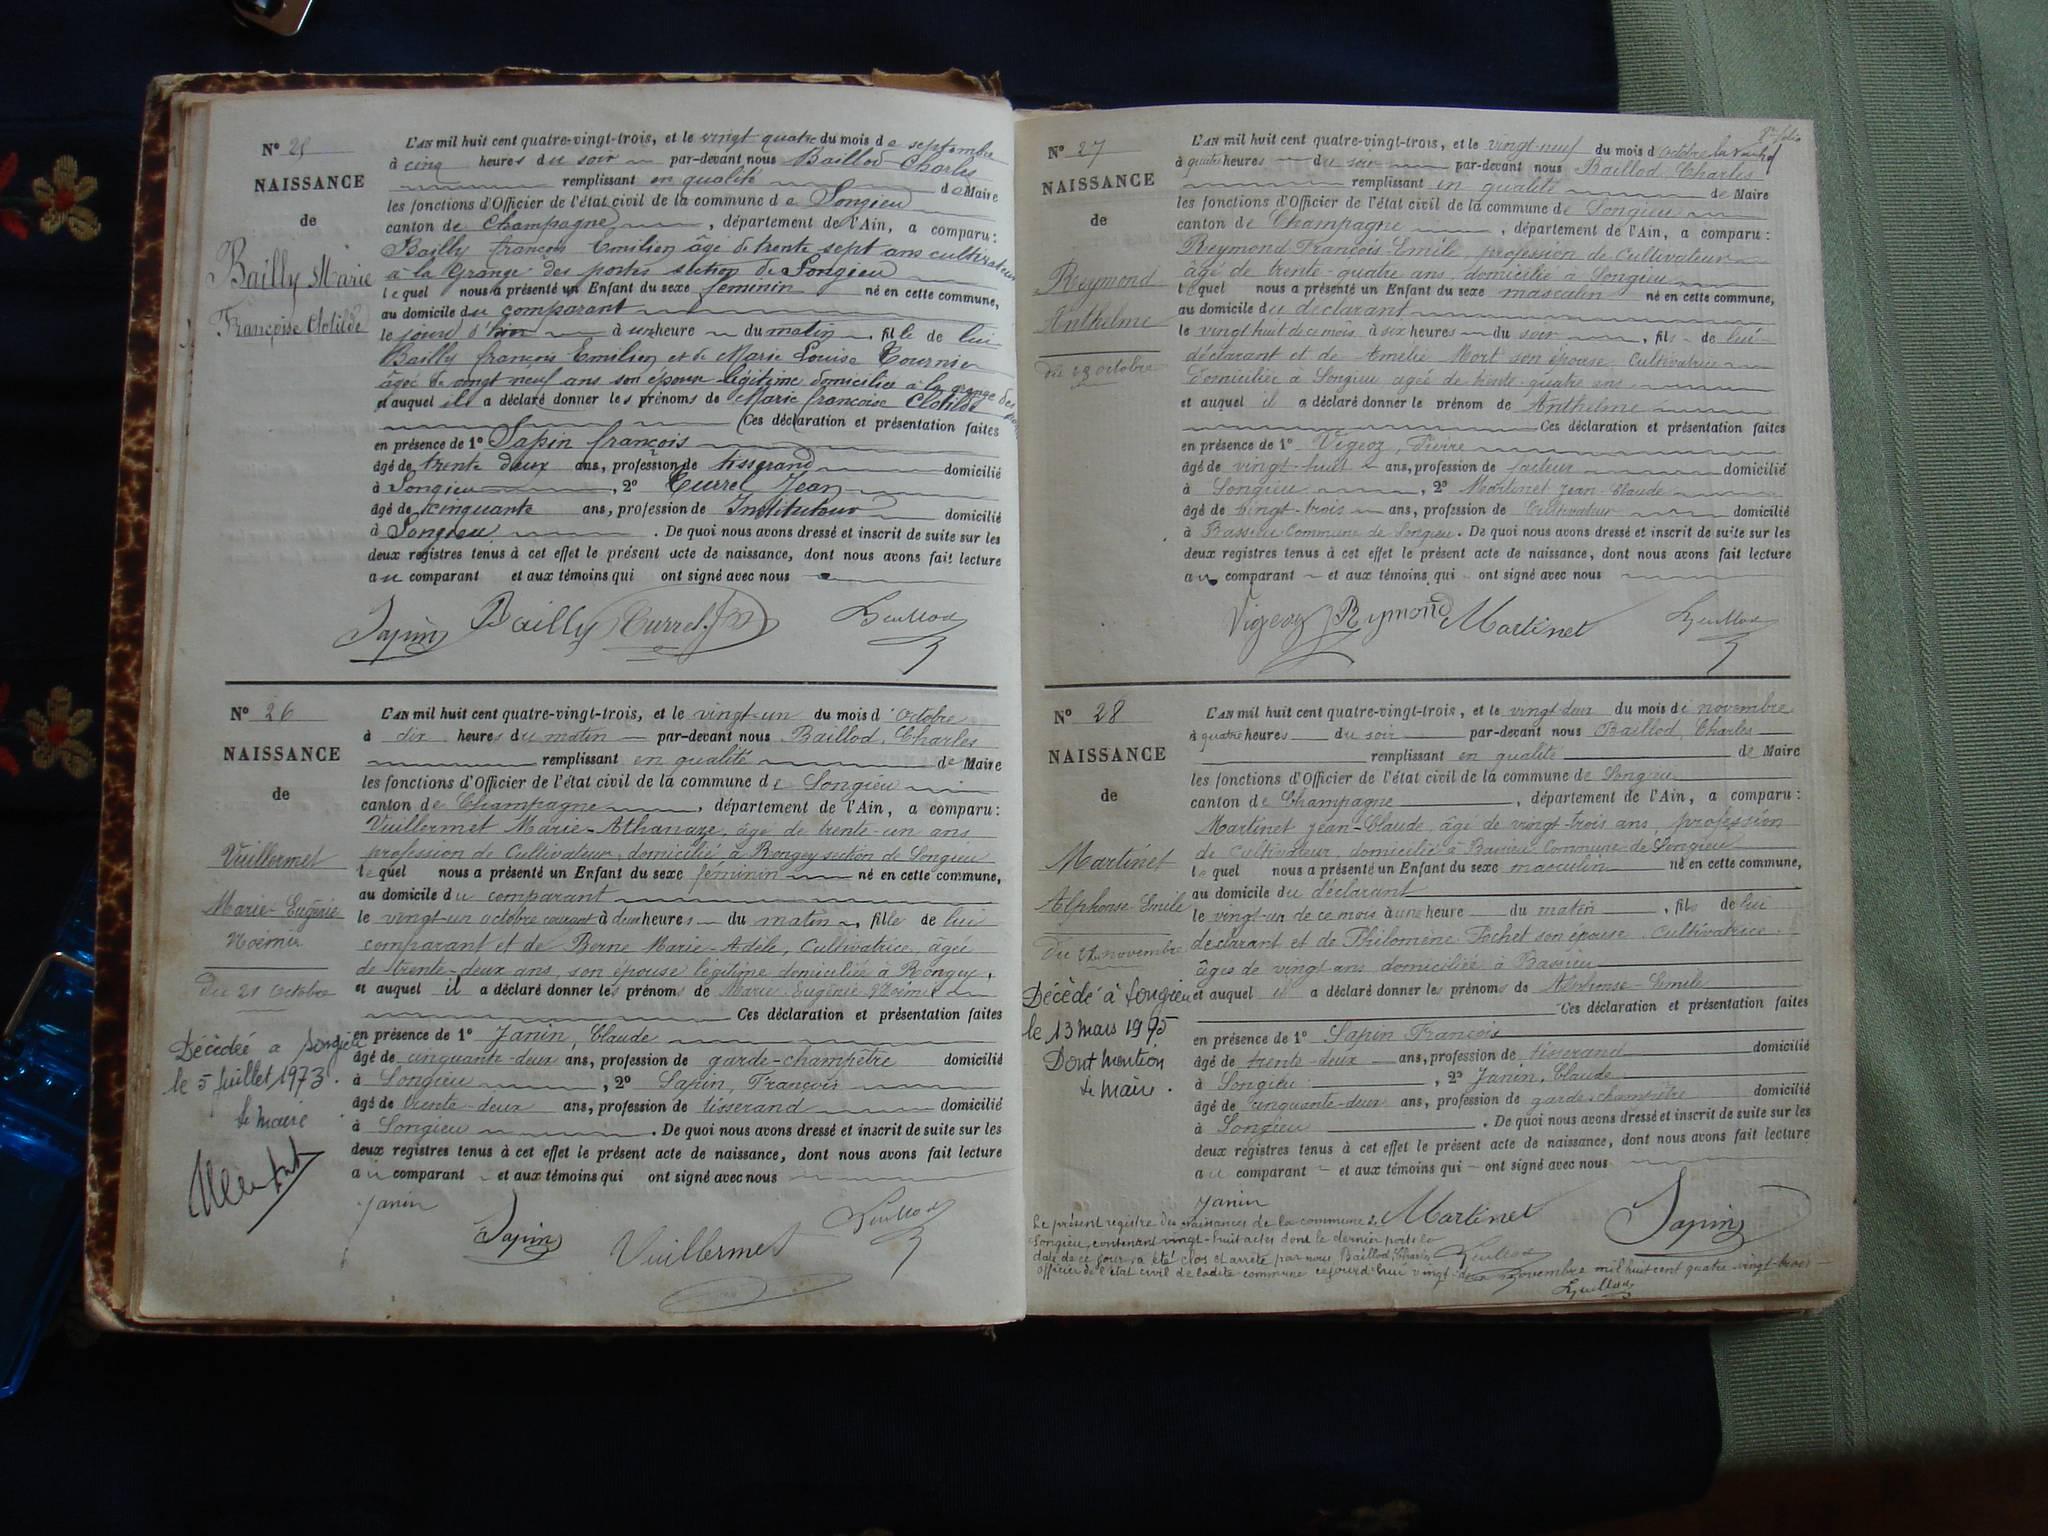 N° 25
NAISSANCE
de
Bailly Marie
Françoise Clotilde
L'AN mil huit cent quatre-vingt-trois, et le vingt quatre du mois de septembre
à cinq heures du soir par-devant nous Baillod Charles
remplissant en qualité de Maire
les fonctions d'Officier de l'état civil de la commune de Songieu
canton de Champagne, département de l'Ain, a comparu:
Bailly françois Emilien âgé de trente sept ans cultivateur
a la Grange des portes section de Songieu
lequel nous a présenté un Enfant du sexe feminin né en cette commune,
au domicile du comparant
le jourd'hui à une heure du matin, fille de lui
Bailly françois Emilien et de Marie Louise Tournier
âgée de vingt neuf ans son épouse légitime domiciliée a la grange des
et auquel il a déclaré donner les prénoms de Marie françoise Clotilde
Ces déclaration et présentation faites
en présence de 1° Sapin françois
âgé de trente deux ans, profession de tisserand domicilié
à Songieu, 2° Turrel Jean
âgé de cinquante ans, profession de Instituteur domicilié
à Songieu. De quoi nous avons dressé et inscrit de suite sur les
deux registres tenus à cet effet le présent acte de naissance, dont nous avons fait lecture
au comparant et aux témoins qui ont signé avec nous
Sapin Bailly Turrel J Baillod
N° 26
NAISSANCE
de
Vuillermet
Marie-Eugénie
Noémie
Du 21 Octobre
Décédée a Songieu
le 5 Juillet 1973.
le maire
L'AN mil huit cent quatre-vingt-trois, et le vingt-un du mois d'Octobre
à dix heures du matin par-devant nous Baillod, Charles
remplissant en qualité de Maire
les fonctions d'Officier de l'état civil de la commune de Songieu
canton de Champagne, département de l'Ain, a comparu:
Vuillermet Marie-Athanaze, âgé de trente-un ans
profession de Cultivateur, domicilié à Rongey section de Songieu
lequel nous a présenté un Enfant du sexe féminin né en cette commune,
au domicile du comparant
le vingt-un octobre courant à deux heures du matin, fille de lui
comparant et de Berne Marie-Adèle, Cultivatrice, âgée
de trente-deux ans, son épouse légitime domiciliée à Rongey,
et auquel il a déclaré donner les prénoms de Marie Eugénie Noémie
Ces déclaration et présentation faites
en présence de 1° Janin, Claude
âgé de cinquante-deux ans, profession de garde-champêtre domicilié
à Songieu, 2° Sapin, François
âgé de trente-deux ans, profession de tisserand domicilié
à Songieu. De quoi nous avons dressé et inscrit de suite sur les
deux registres tenus à cet effet le présent acte de naissance, dont nous avons fait lecture
au comparant et aux témoins qui ont signé avec nous
Janin Sapin Vuillermet Baillod
N° 27
NAISSANCE
de
Reymond
Anthelme
du 29 octobre
8e folio
L'AN mil huit cent quatre-vingt-trois, et le vingt-neuf du mois d'octobre
à quatre heures du soir par-devant nous Baillod Charles
remplissant en qualité de Maire
les fonctions d'Officier de l'état civil de la commune de Songieu
canton de Champagne, département de l'Ain, a comparu:
Reymond François-Emile, profession de Cultivateur
âgé de trente-quatre ans, domicilié à Songieu
lequel nous a présenté un Enfant du sexe masculin né en cette commune,
au domicile du déclarant
le vingt huit de ce mois à six heures du soir, fils de lui
déclarant et de Amélie Mort son épouse Cultivatrice
domiciliée à Songieu agée de trente-quatre ans
et auquel il a déclaré donner le prénom de Anthelme
Ces déclaration et présentation faites
en présence de 1° Vigeoz, Pierre
âgé de vingt-huit ans, profession de facteur domicilié
à Songieu, 2° Martinet Jean-Claude
âgé de vingt-trois ans, profession de Cultivateur domicilié
à Bassieu Commune de Songieu. De quoi nous avons dressé et inscrit de suite sur les
deux registres tenus à cet effet le présent acte de naissance, dont nous avons fait lecture
au comparant et aux témoins qui ont signé avec nous
Vigeoz Reymond Martinet Baillod
N° 28
NAISSANCE
de
Martinet
Alphonse-Emile
Du 22 novembre
Décédé à Songieu
le 13 mars 1975
Dont mention
le maire.
L'AN mil huit cent quatre-vingt-trois, et le vingt-deux du mois de novembre
à quatre heures du soir par-devant nous Baillod, Charles
remplissant en qualité de Maire
les fonctions d'Officier de l'état civil de la commune de Songieu
canton de Champagne, département de l'Ain, a comparu:
Martinet Jean-Claude, âgé de vingt-trois ans, profession
de cultivateur, domicilié à Bassieu Commune de Songieu
lequel nous a présenté un Enfant du sexe masculin né en cette commune,
au domicile du déclarant
le vingt-un de ce mois à une heure du matin, fils de lui
déclarant et de Philomène Pochet son épouse Cultivatrice
âgée de vingt ans domiciliée à Bassieu
et auquel il a déclaré donner les prénoms de Alphonse-Emile
Ces déclaration et présentation faites
en présence de 1° Sapin François
âgé de trente-deux ans, profession de tisserand domicilié
à Songieu, 2° Janin, Claude
âgé de cinquante-deux ans, profession de garde-champêtre domicilié
à Songieu. De quoi nous avons dressé et inscrit de suite sur les
deux registres tenus à cet effet le présent acte de naissance, dont nous avons fait lecture
au comparant et aux témoins qui ont signé avec nous
Janin Martinet Sapin
Le présent registre des naissances de la commune de
Songieu, contenant vingt-huit actes dont le dernier porte la
date de ce jour, a été clos et arrêté par nous, Baillod, Charles
Officier de l'état civil de ladite commune cejourd'hui vingt-deux novembre mil huit cent quatre vingt-trois
Baillod